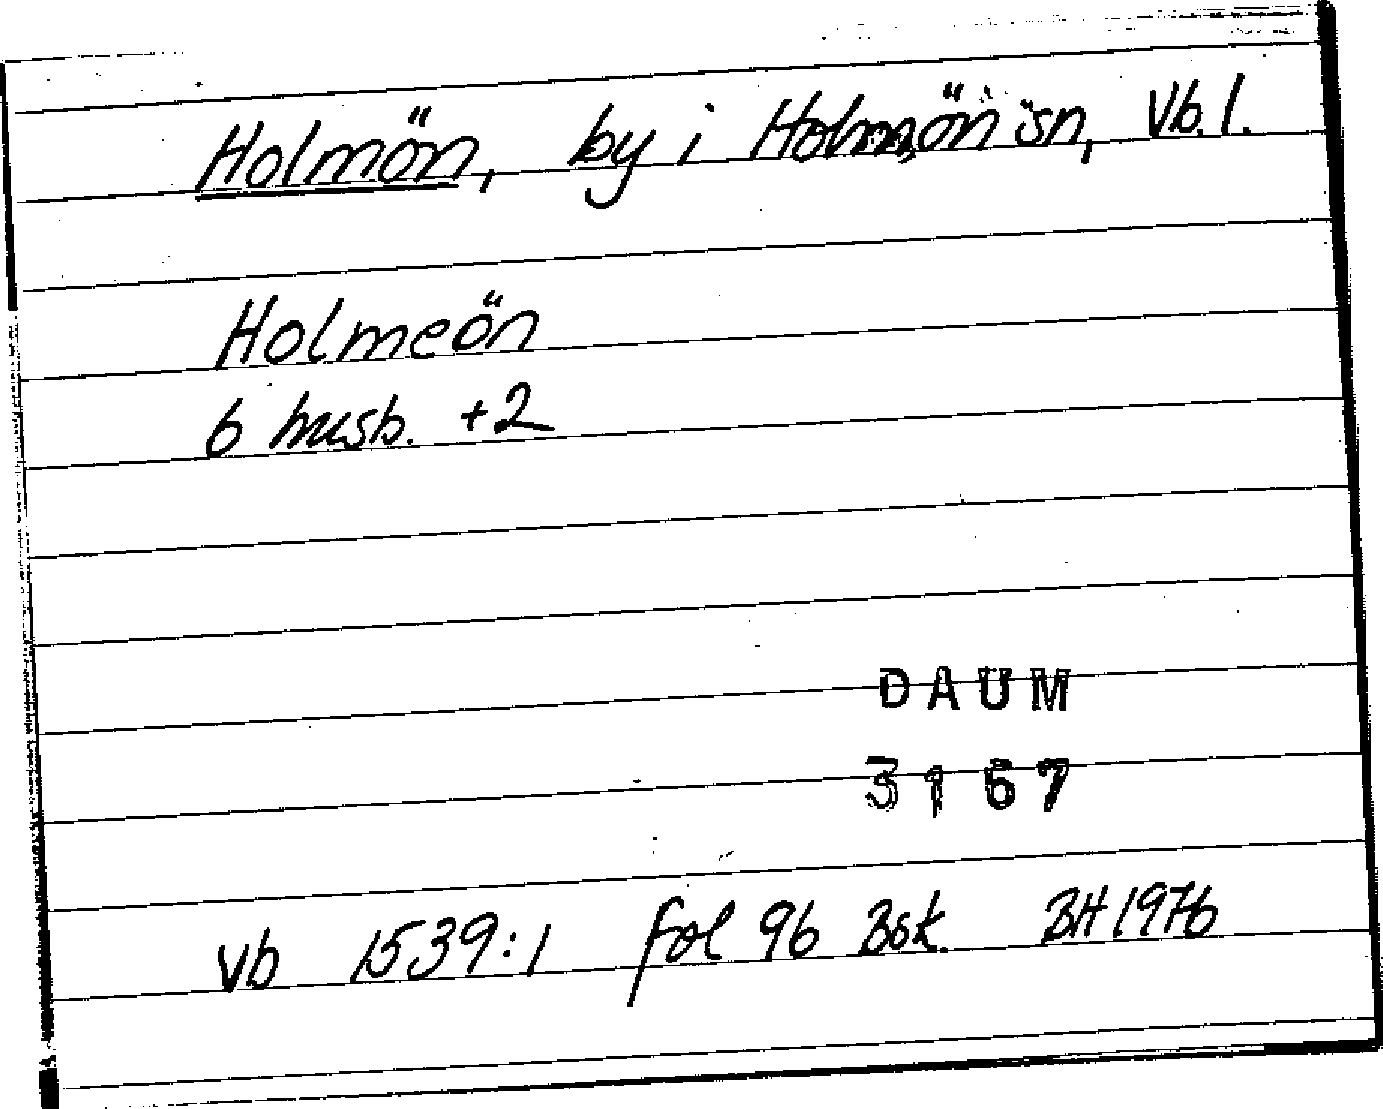 Holmön, by i Holmöns sn, Vb. l.
Holmeön
6 husb. +2
DAUM
3167
Vb 1539:1 fol 96 Bsk. BH 1976